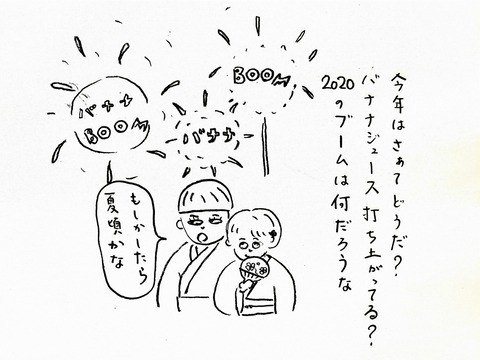 今年はさぁてどうだ?
バナナジュース打ち上がってる?
2020のブームは何だろうな
BOOM
バナナ
BOOM
バナナ
もしかしたら
夏頃かな